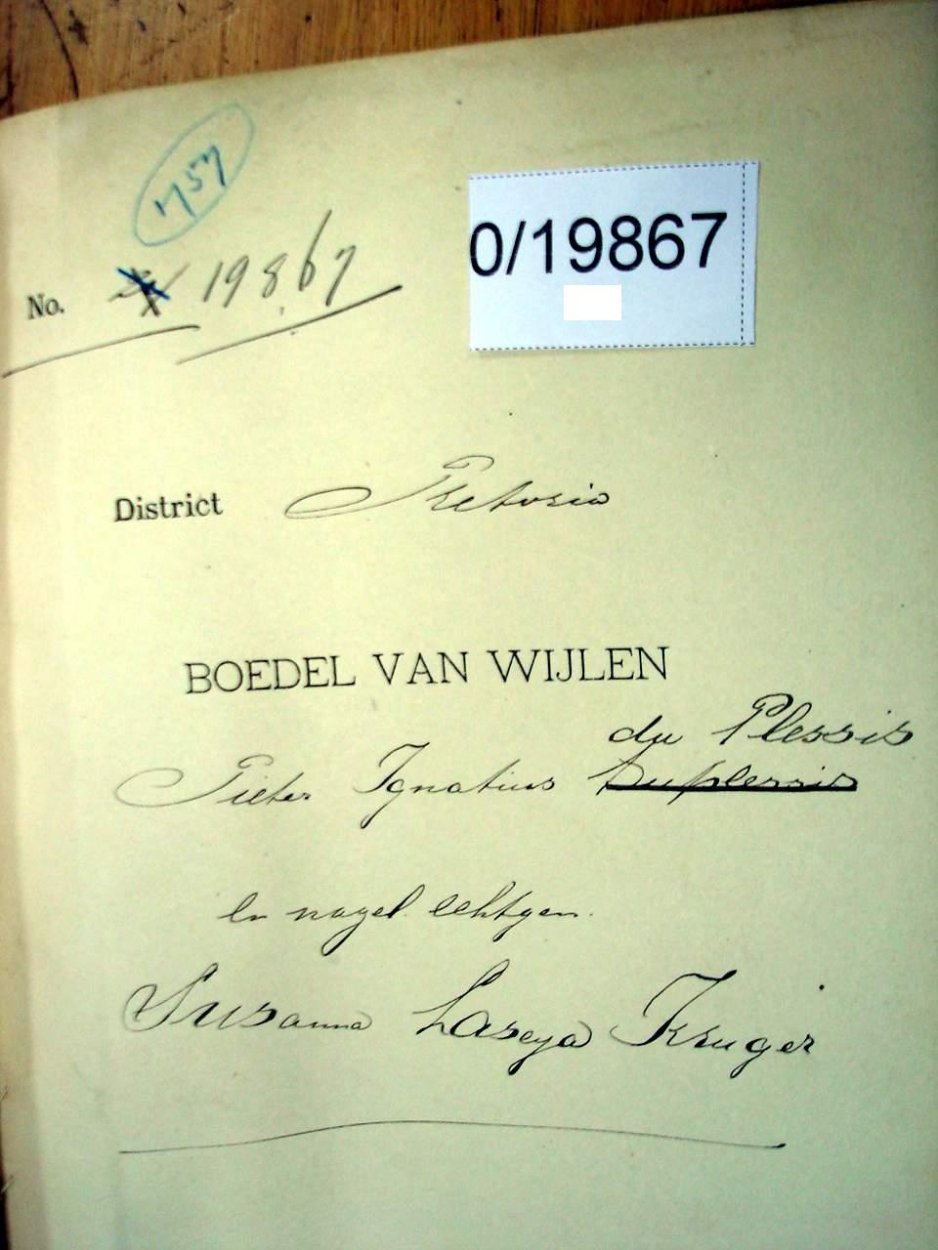 1757
No. 19867
0/19867
District Pretoria
BOEDEL VAN WIJLEN
du Plessis
Pieter Ignatius Duplessis
en nagel. echtgen.
Susanna Laseya Kruger